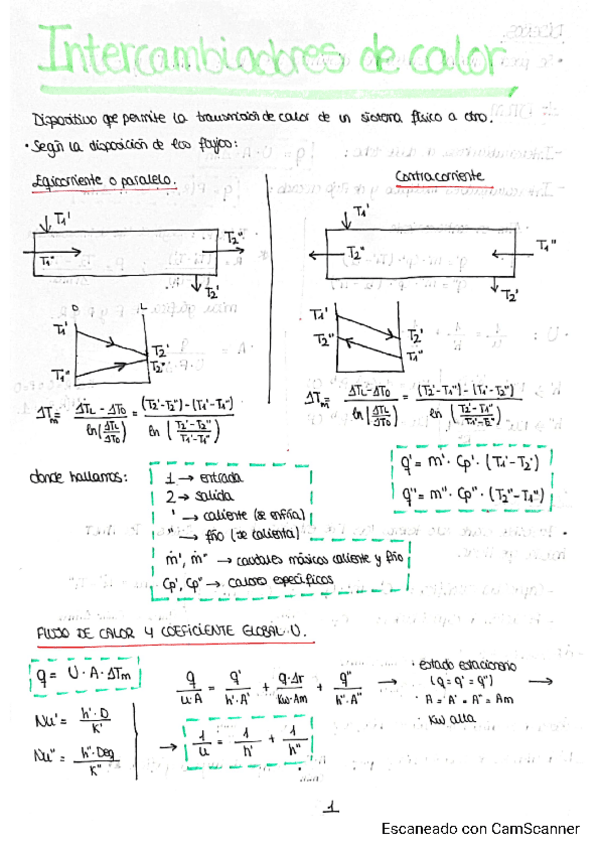 Intercambiadores de calor
Dispositivo que permite la transmisión de calor de un sistema físico a otro.
• Según la disposición de los flujos:
Equicorriente o paralelo.
Contracorriente
T1'
T1"
T2"
T2'
T1'
T2"
T1"
T2'
0 L
T1'
T1"
T2'
T2"
T1'
T2"
T2'
T1"
ΔTm = (ΔTL - ΔT0) / ln(ΔTL/ΔT0) = ((T2'-T2") - (T1'-T1")) / ln((T2'-T2")/(T1'-T1"))
ΔTm = (ΔTL - ΔT0) / ln(ΔTL/ΔT0) = ((T2'-T1") - (T1'-T2")) / ln((T2'-T1")/(T1'-T2"))
donde hallamos:
1 → entrada
2 → salida
' → caliente (se enfría)
" → frío (se calienta)
ṁ', ṁ" → caudales másicos caliente y frío
Cp', Cp" → calores específicos
q' = m' · Cp' · (T1'-T2')
q" = m" · Cp" · (T2"-T1")
FLUJO DE CALOR Y COEFICIENTE GLOBAL U.
q = U · A · ΔTm
Nu' = h'·D / K'
Nu" = h"·Deq / K"
q/(U·A) = q'/(h'·A') + q·Δr/(Kw·Am) + q"/(h"·A") →
• estado estacionario
(q = q' = q")
• A = A' = A" = Am
• Kw alta
→
→ 1/U = 1/h' + 1/h"
1
Escaneado con CamScanner